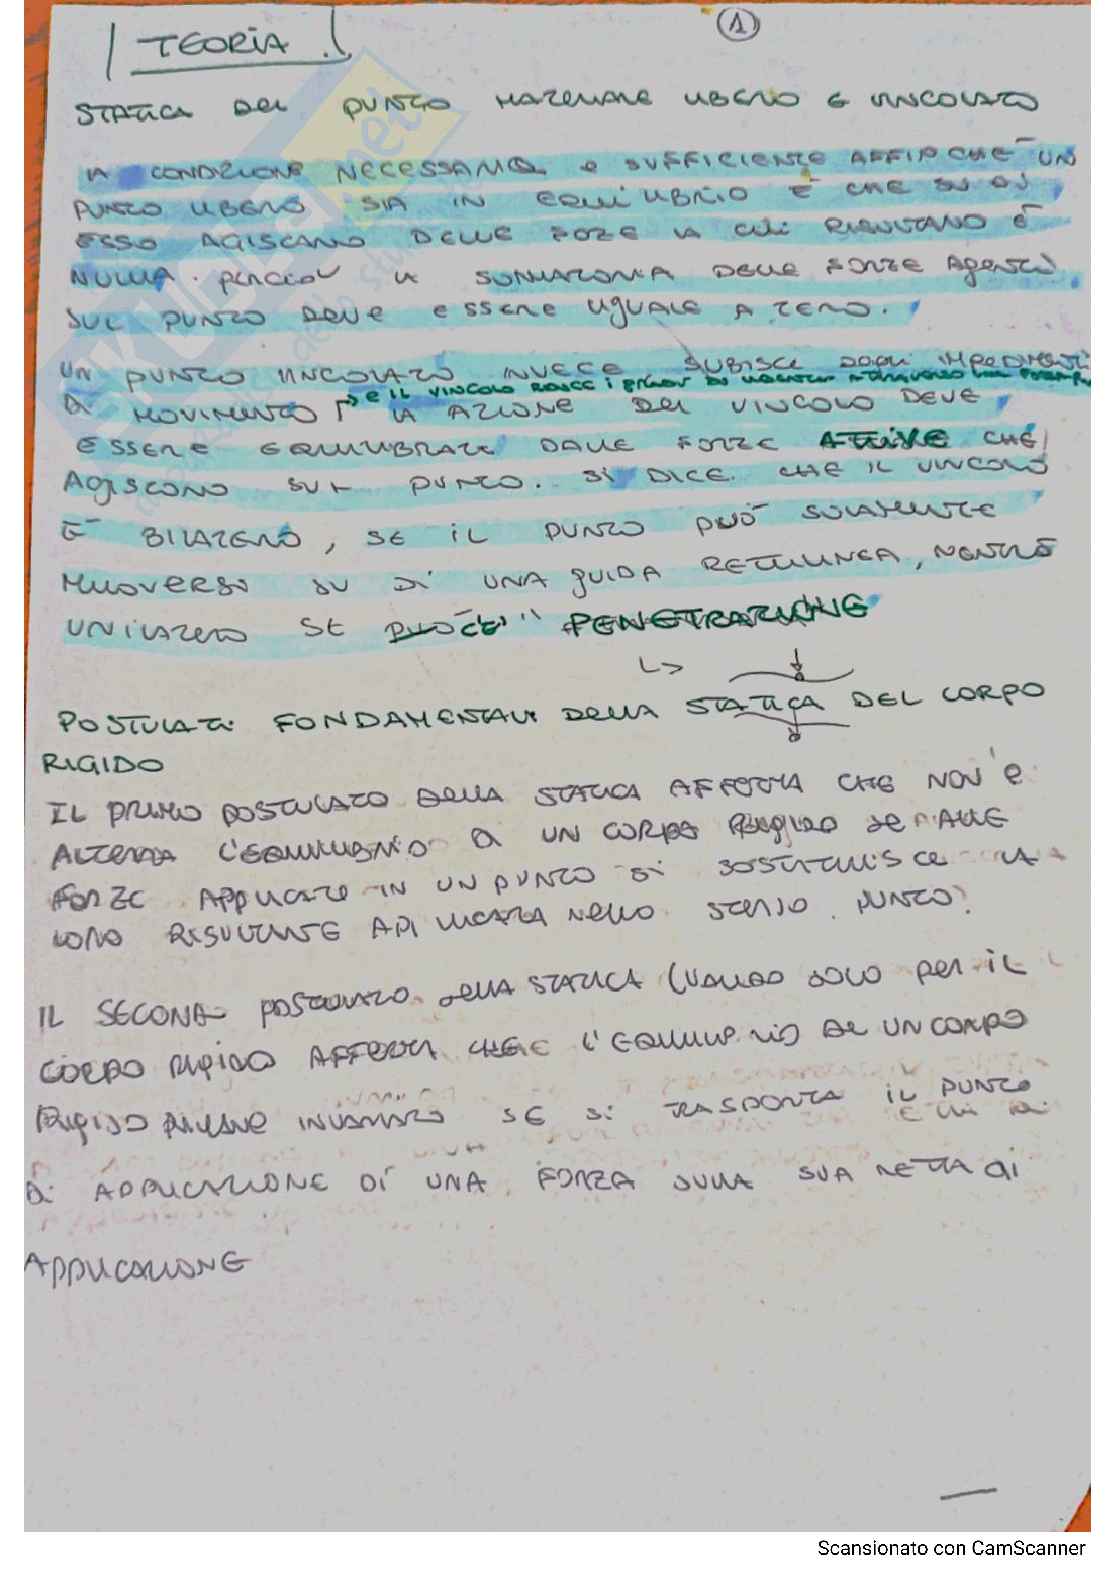 1
TEORIA
STATICA DEL PUNTO MATERIALE LIBERO E VINCOLATO
LA CONDIZIONE NECESSARIA e SUFFICIENTE AFFINCHÉ UN
PUNTO LIBERO SIA IN EQUILIBRIO È CHE SU DI
ESSO AGISCANO DELLE FOZE LA CUI RISULTANO È
NULLA. perciò LA SOMMATORIA DELLE FORZE Agenti
SUL PUNTO DEVE ESSERE UgUALE A ZERO.
UN PUNTO VINCOLATO INVECE SUBISCE DEGLI IMPEDIMENTI
e IL VINCOLO i DI
DI MOVIMENTO LA AZIONE DEL VINCOLO DEVE
ESSERE EQUILIBRATE DALLE FORZE ATTIVE CHE
AGISCONO SUL PUNTO. SI DICE CHE IL VINCOLO
È BILATERO, SE IL PUNTO PUÒ SOLAMENTE
MUOVERSI SU DI UNA GUIDA RETTILINEA, MENTRE
UNILATERO SE PUÒ C'È " PENETRAZIONE
POSTULATI FONDAMENTALI DELLA STATICA DEL CORPO
RIGIDO
IL PRIMO POSTULATO DELLA STATICA AFFERMA CHE NON È
ALTERATA L'EQUILIBRIO DI UN CORPO RIGIDO SE ALLE
FORZE APPLICATE IN UN PUNTO SI SOSTITUISCE LA
LORO RISULTANTE APPLICATA NELLO STESSO PUNTO.
IL SECONDO POSTULATO DELLA STATICA (VALIDO SOLO PER IL
CORPO RIGIDO AFFERMA CHE L'EQUILIBRIO DI UN CORPO
RIGIDO RIMANE INVARIATO SE SI TRASPORTA IL PUNTO
DI APPLICAZIONE DI UNA FORZA SULLA SUA RETTA DI
APPLICAZIONE
Scansionato con CamScanner